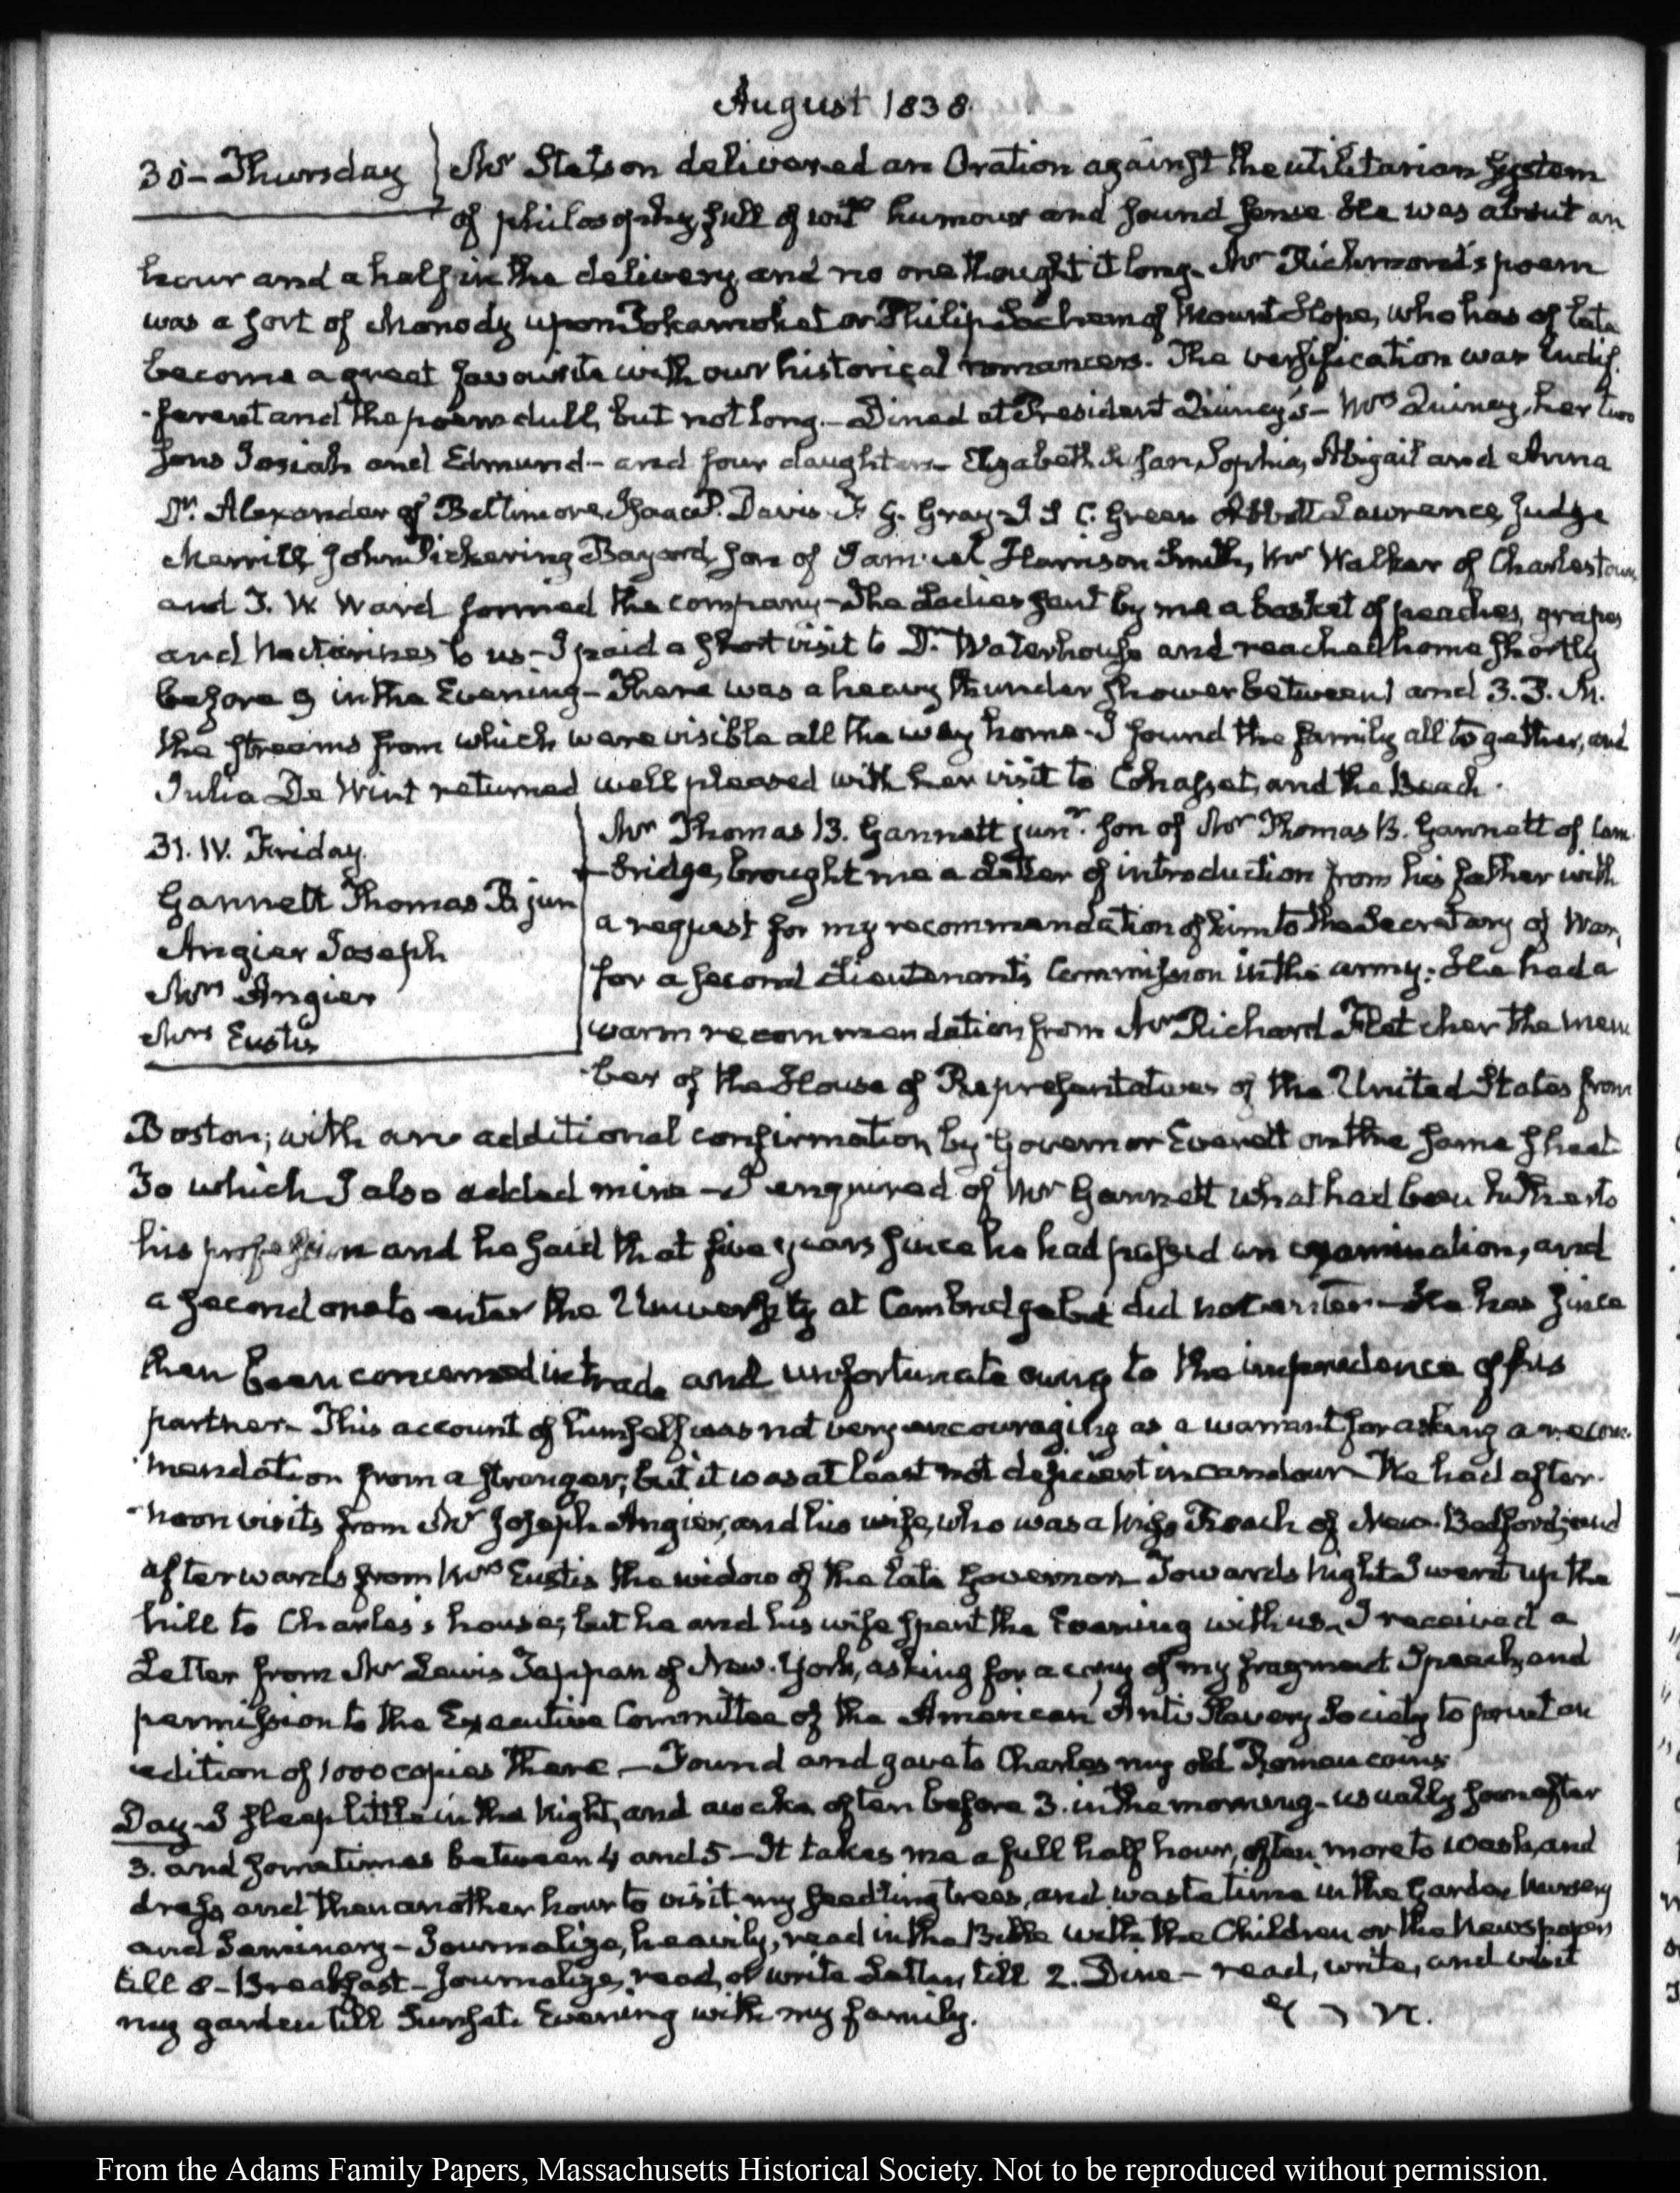 August 1838.
30 - Thursday
Mr Stetson delivered an Oration against the utilitarian System
of philosophy, full of wit humour and sound sense. He was about an
hour and a half in the delivery, and no one thought it long. Mr Richmond's poem
was a sort of Monody upon Pokamoket or Philip Sachem of Mount Hope, who has of late
become a great favourite with our historical romancers. The versification was indif-
-ferent and the poem dull, but not long. - Dined at President Quincy's - Mrs Quincy, her two
sons Josiah and Edmund - and four daughters - Elizabeth Susan, Sophia, Abigail and Anna
Dr. Alexander of Baltimore, Isaac P. Davis F. G. Gray J S C. Green Abbott Lawrence, Judge
Merrill, John Pickering Bayard, son of Samuel Harrison Smith, Mr Walker of Charlestown
and T. W. Ward formed the company - The Ladies sent by me a basket of peaches, grapes
and Nectarines to us - I paid a short visit to Dr. Waterhouse and reached home shortly
before 9 in the Evening - There was a heavy thunder shower between 1 and 3. P. M.
the streams from which were visible all the way home - I found the family all together, and
Julia De Wint returned well pleased with her visit to Cohasset, and the Beach.
31. IV. Friday.
Gannett Thomas B. jun
Angier Joseph
Mrs Angier
Mrs Eustis
Mr Thomas B. Gannett junr. son of Mr Thomas B. Gannett of Cam-
-bridge, brought me a Letter of introduction from his father with
a request for my recommendation of him to the Secretary of War,
for a second Lieutenant's Commission in the army: He had a
warm recommendation from Mr Richard Fletcher the mem
-ber of the House of Representatives of the United States from
Boston; with an additional confirmation by Governor Everett on the same sheet
To which I also added mine - I enquired of Mr Gannett what had been hitherto
his profession and he said that five years since he had passed an examination, and
a second one to enter the University at Cambridge but did not enter - He has since
then been concerned in trade and unfortunate owing to the imprudence of his
partner - This account of himself was not very encouraging as a warrant for asking a recom-
-mendation from a stranger; but it was at least not deficient in candour - We had after-
-noon visits from Mr Joseph Angier, and his wife, who was a Miss Rotch of New-Bedford; and
afterwards from Mrs Eustis the widow of the late Governor - Towards Night I went up the
hill to Charles's house; but he and his wife spent the Evening with us - I received a
Letter from Mr Lewis Tappan of New-York, asking for a copy of my fragment Speech, and
permission to the Executive Committee of the American Anti Slavery Society to print an
edition of 1000 copies there. - Found and gave to Charles my old Roman coins
Day - I sleep little in the Night, and awake often before 3. in the morning - usually soon after
3. and sometimes between 4 and 5 - It takes me a full half hour, often more to wash, and
dress and then another hour to visit my seedling trees, and waste time in the Garden Nursery
and Seminary - Journalize, heavily, read in the Bible with the Children or the Newspapers
till 8 - Breakfast - Journalize, read, or write Letters, till 2. Dine - read, write, and visit
my garden till Sunset. Evening with my family.
From the Adams Family Papers, Massachusetts Historical Society. Not to be reproduced without permission.